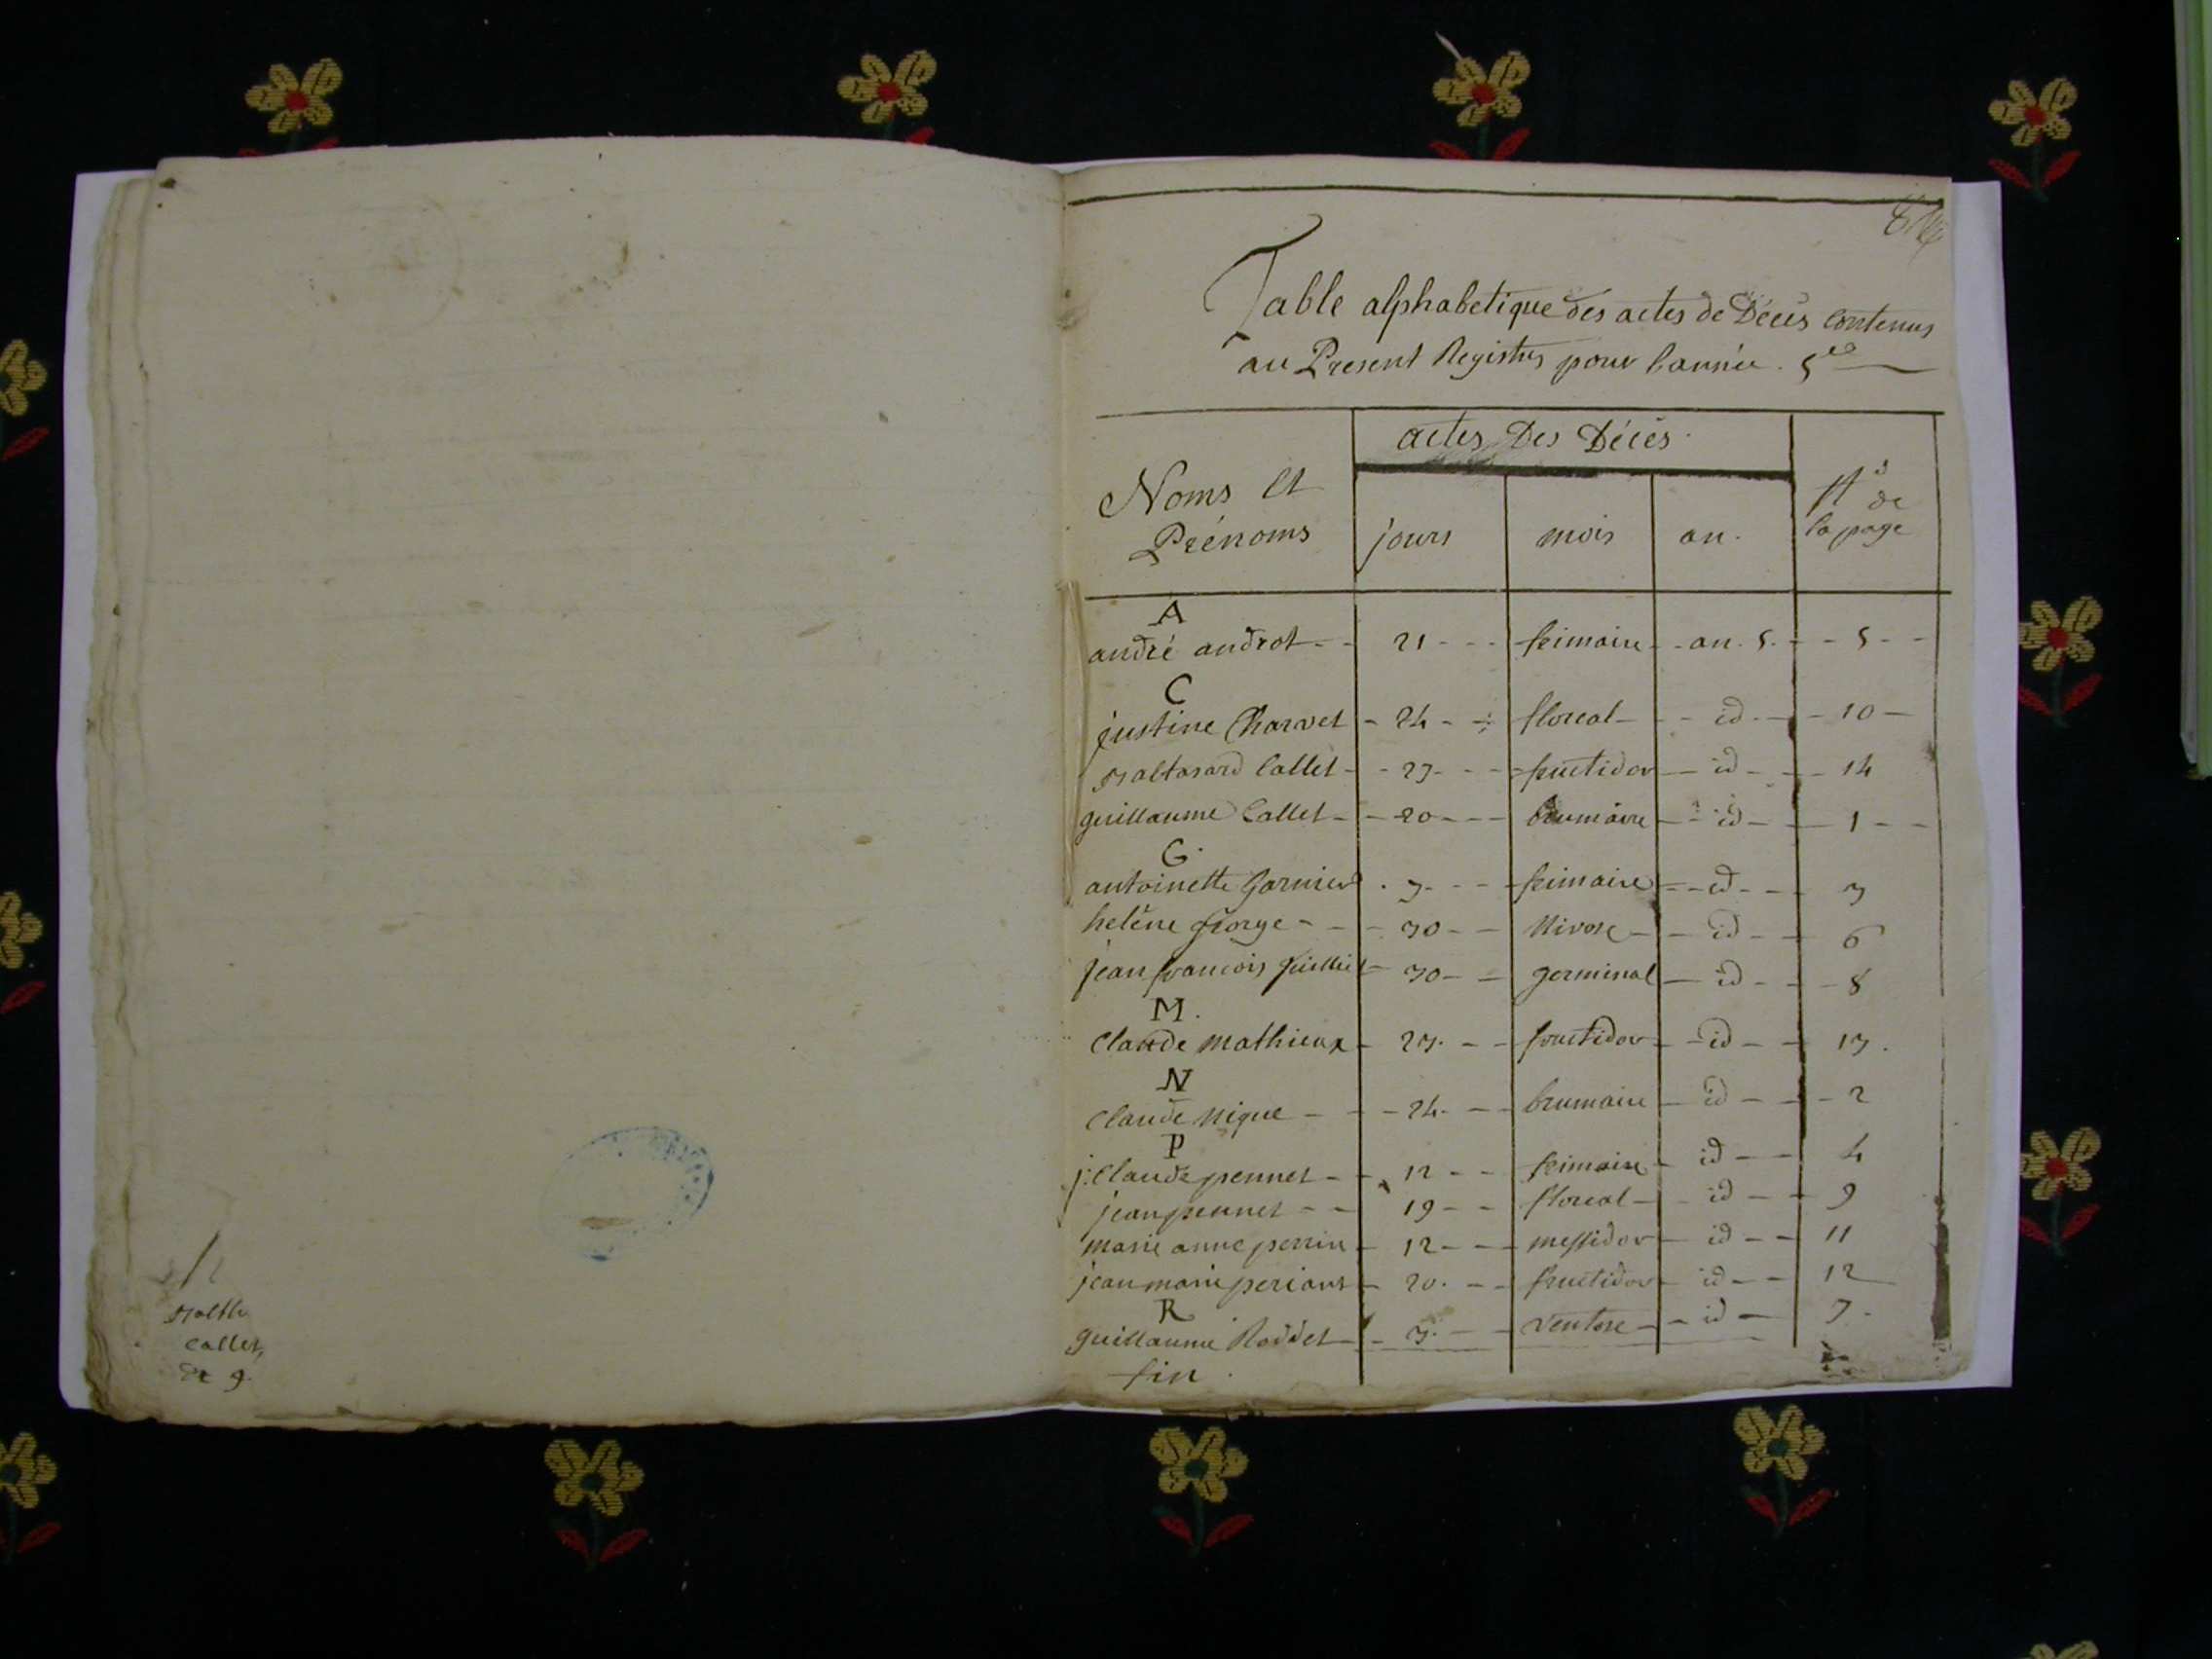 Table alphabetique des actes de Décès contenus
au Present Registres pour l'année. 5e
Noms et Prénoms
actes Des Décès
jours mois an.
No de la page
A
andré androt 21 frimaire an. 5. 5
C
justine Charvet 24 floreal id. 10
Baltasard Callet 23 fructidor id 14
guillaume Callet 20 brumaire id 1
G.
antoinette Garnier 3 frimaire id 3
helène george 30 Nivose id 6
jean francois 30 germinal id 8
M.
Claude mathieux 23. fructidor id 13.
N
Claude Nique 24. brumaire id 2
P
j. Claude pennet 12 frimaire id 4
jean pennet 19 floreal id 9
marie anne perrin 12 messidor id 11
jean marie 20. fructidor id 12
R
guillaume Roddet 3. ventose id 7.
fin.
Callet,